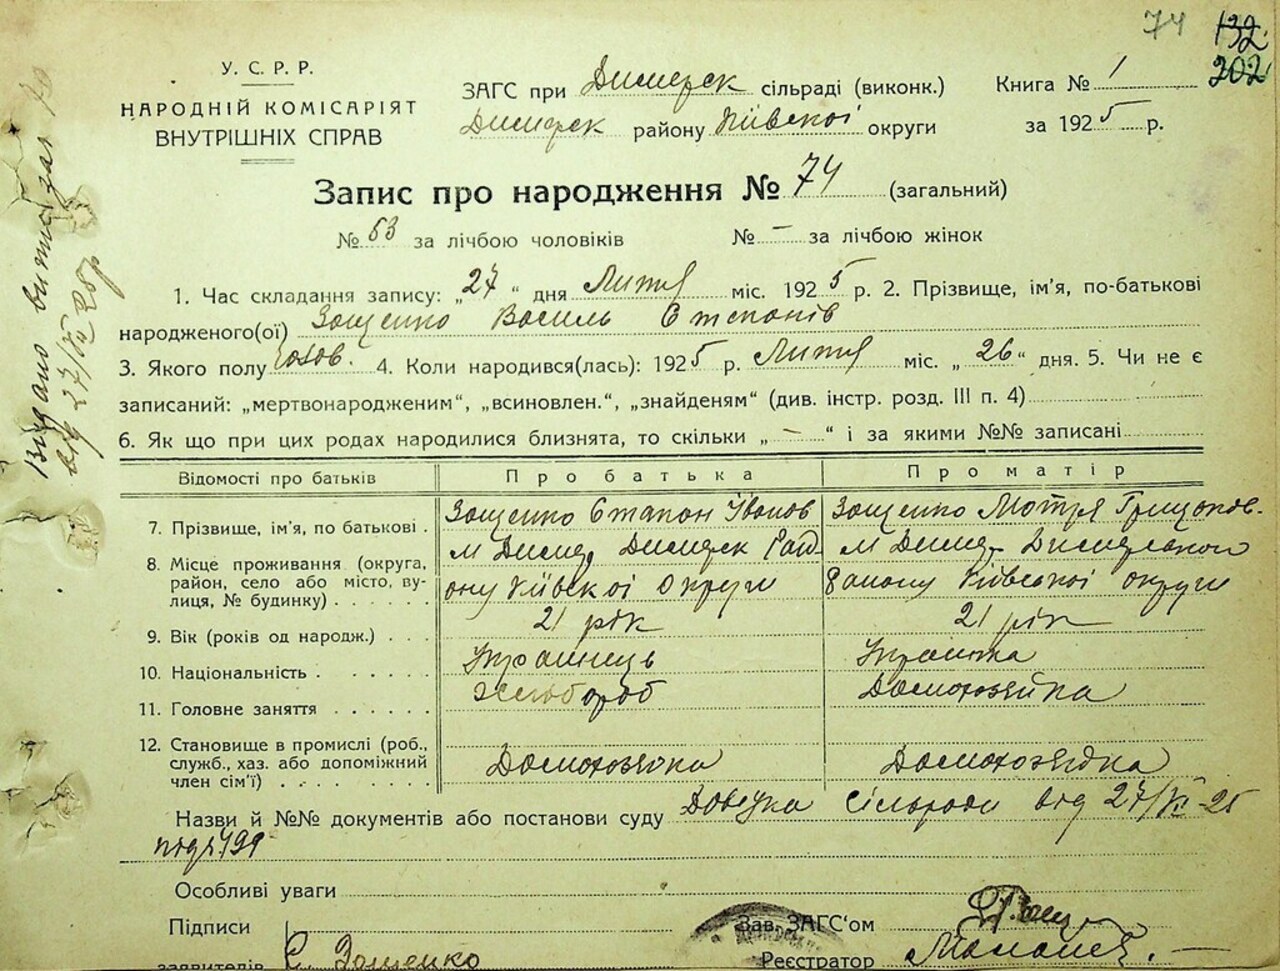 74 132
202
У. С. Р. Р.
НАРОДНІЙ КОМІСАРІЯТ
ВНУТРІШНІХ СПРАВ
ЗАГС при Димерск сільраді (виконк.)
Димерск району Київскої округи
Книга № 1
за 1925 р.
Запис про народження № 74 (загальний)
№ 53 за лічбою чоловіків № – за лічбою жінок
1. Час складання запису: „27“ дня Лютя міс. 1925 р. 2. Прізвище, ім'я, по-батькові
народженого(ої) Зощенко Василь Степанів
3. Якого полу чолов. 4. Коли народився(лась): 1925 р. Лютя міс. „26“ дня. 5. Чи не є
записаний: „мертвонародженим“, „всиновлен.“, „знайденям“ (див. інстр. розд. III п. 4)
6. Як що при цих родах народилися близнята, то скільки „–“ і за якими №№ записані
Відомості про батьків Про батька Про матір
7. Прізвище, ім'я, по батькові Зощенко Степан Іванов Зощенко Мотря Грицьков.
8. Місце проживання (округа, район, село або місто, вулиця, № будинку) м Димер Димерск Району Київскої округи м Димер Димерського Району Київської округи
9. Вік (років од народж.) 21 рік 21 рік
10. Національність Українець Українка
11. Головне заняття Хлібороб Домохозяйка
12. Становище в промислі (роб., служб., хаз. або допоміжний член сім'ї) Домохозяйка Домохозяйка
Назви й №№ документів або постанови суду Довідка Сільради від 27/II-25
під № 199
Особливі уваги
Підписи
заявителів С. Зощенко
Зав. ЗАГС'ом
Реєстратор
Видано витяг за №
від 27/II 25р